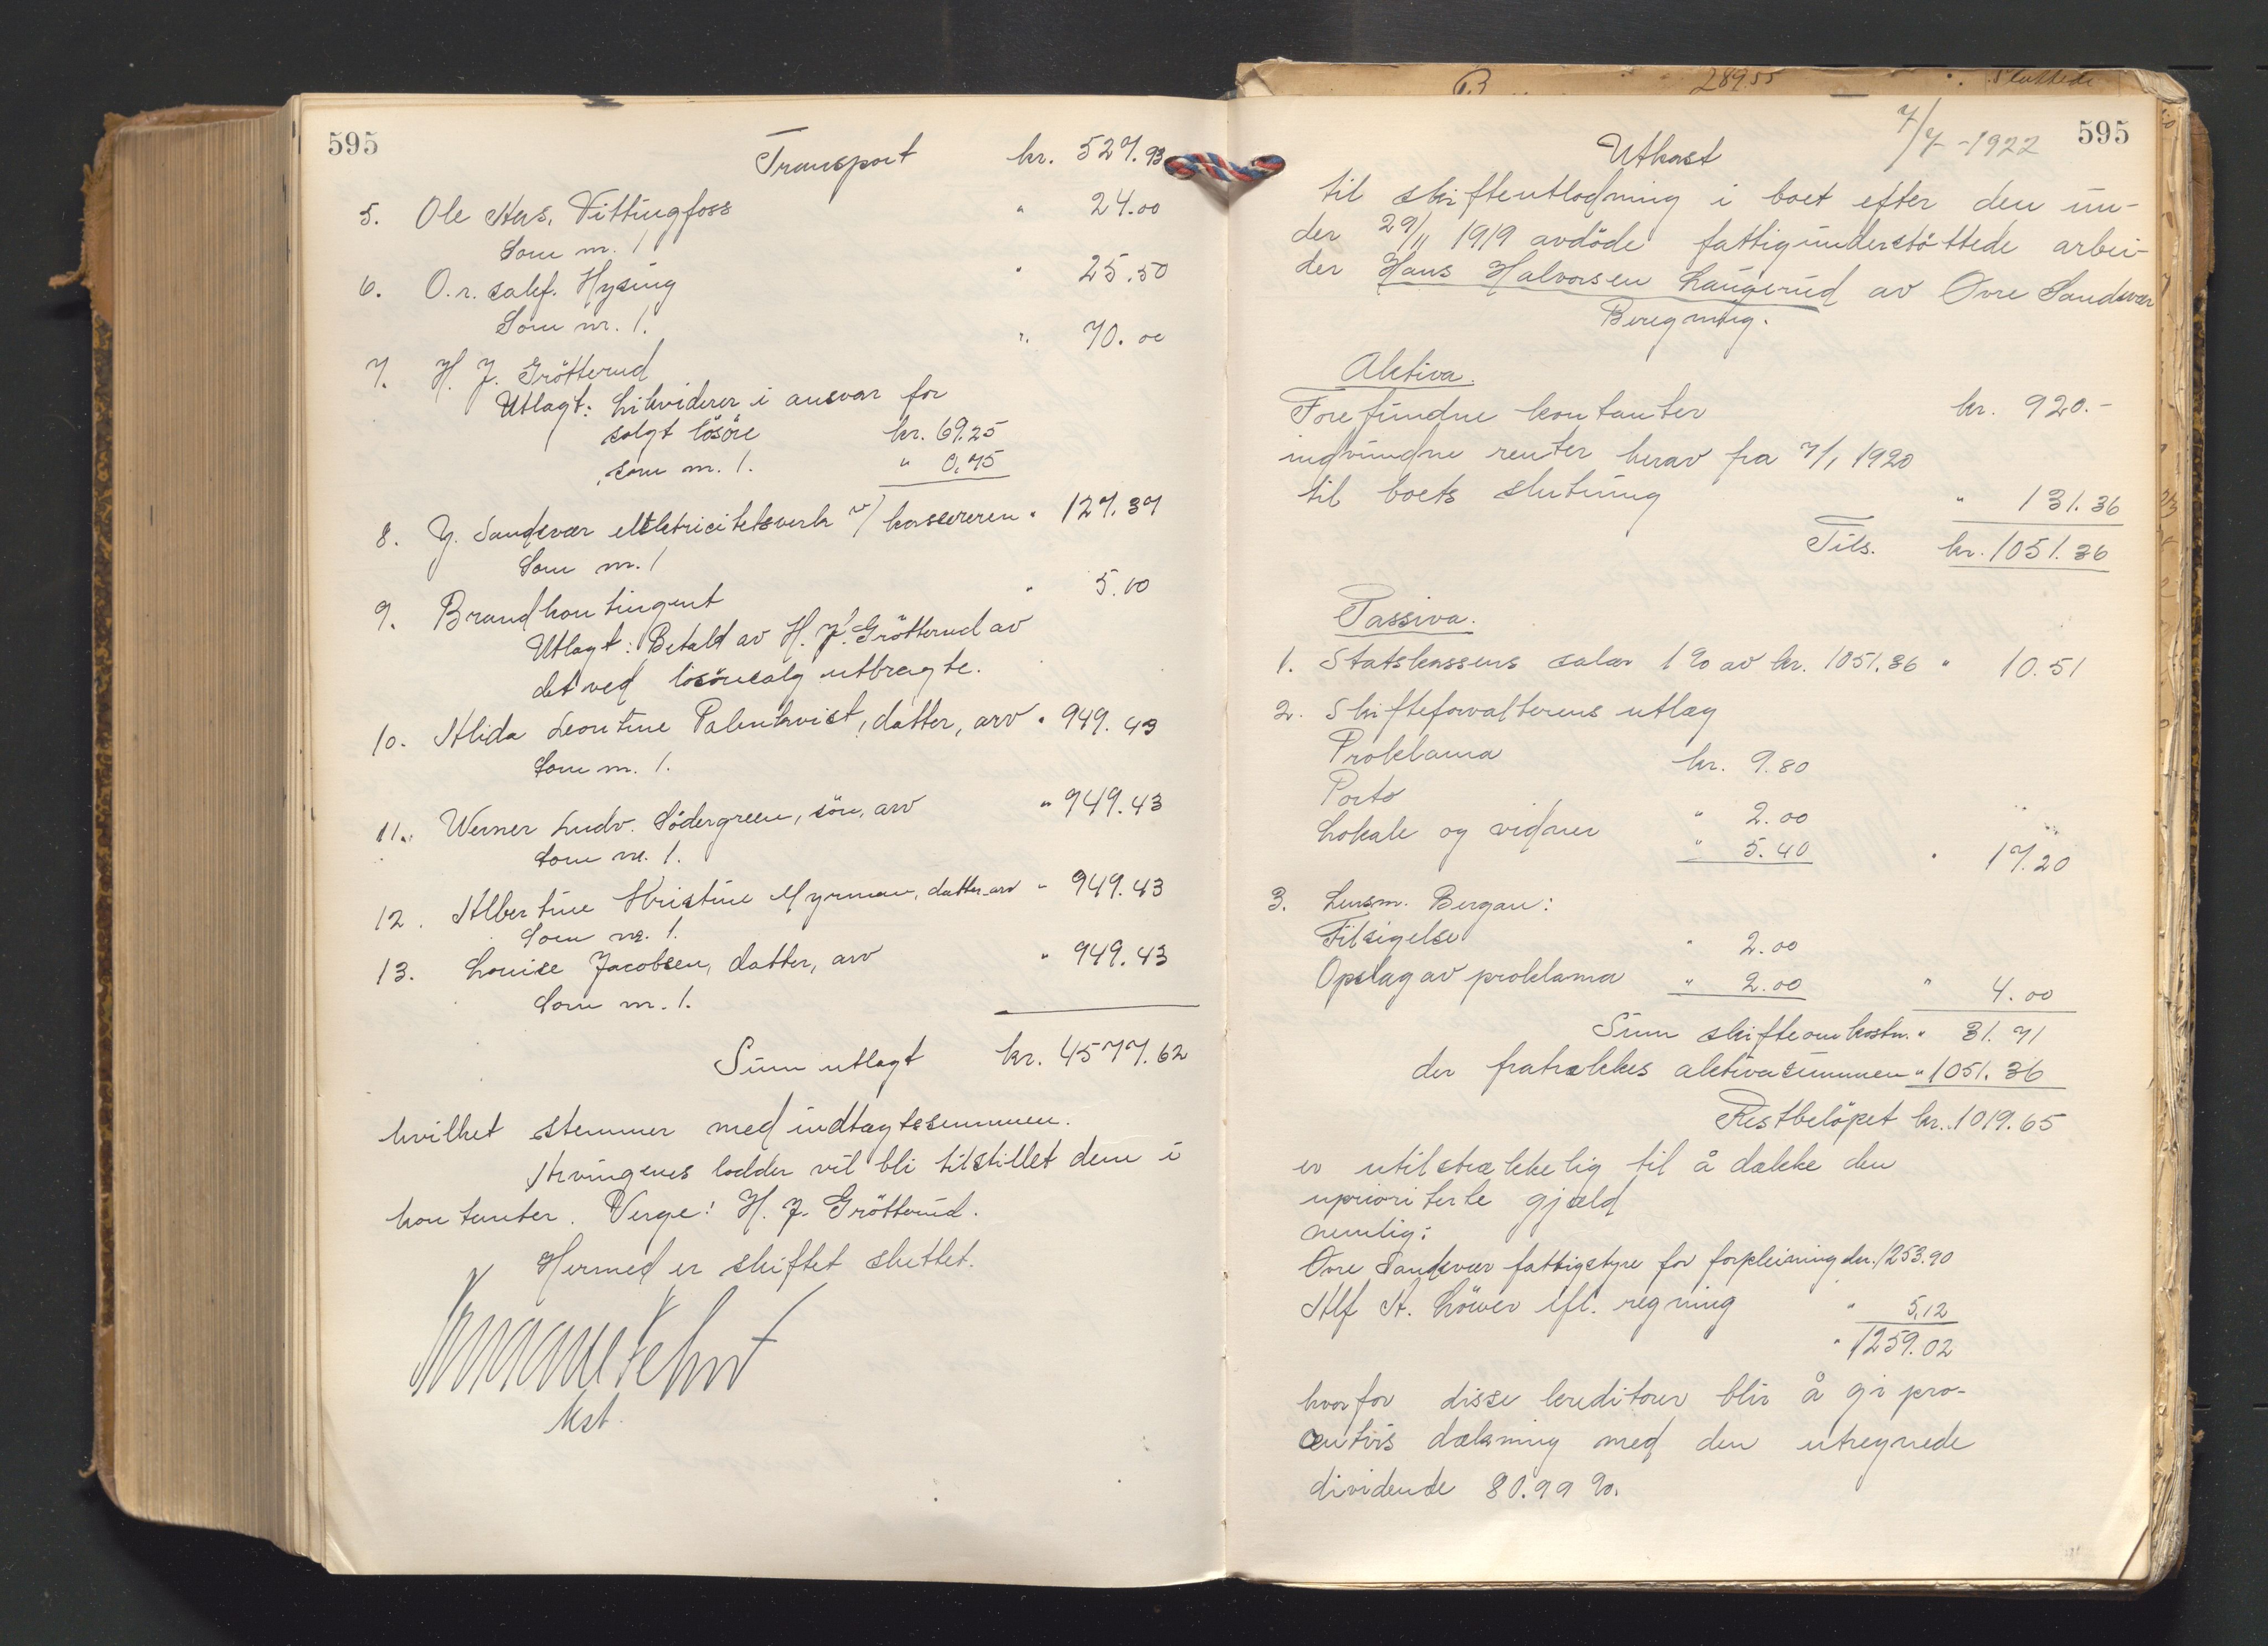 595
Transport kr. 527.93
5. Ole Ans. Vittingfoss " 24.00
Som nr. 1
6. O.r. sakf. Hysing " 25.50
Som nr. 1.
7. H. J. Grötterud " 70.00
Utlagt: Likviderer i ansvar for
solgt lösöre kr. 69.25
som nr. 1. " 0,75
8. Y. Sandsvær elektricitetsverk v/ kassereren " 127.37
Som nr. 1
9. Brandkontingent " 5.00
Utlagt: Betalt av H. J. Grötterud av
det ved lösöresalg utbragte.
10. Alida Leontine Palmkvist, datter, arv " 949.43
Som nr. 1.
11. Werner Ludv. Södergreen, sön, arv " 949.43
Som nr. 1.
12. Albertine Kristine Myrman, datter, arv " 949.43
Som nr. 1.
13. Louise Jacobsen, datter, arv " 949.43
Som nr. 1.
Sum utlagt kr. 4577.62
hvilket stemmer med indtægtssummen.
Arvingenes lodder vil bli tilstillet dem i
kontanter. Verge: H. J. Grötterud.
Hermed er skiftet sluttet.
kst.
289.55 Sluttede
7/7-1922 595
Utkast
til skifteutlodning i boet efter den un-
der 29/11 1919 avdöde fattigunderstöttede arbei-
der Hans Halvorsen Laugerud av Övre Sandsvær
Beregning.
Aktiva.
Forefundne kontanter kr. 920.-
indvundne renter herav fra 7/1 1920
til boets slutning " 131.36
Tils. kr. 1051.36
Passiva.
1. Statskassens salær 1% av kr. 1051.36 " 10.51
2. Skifteforvalterens utlæg
Proklama kr. 9.80
Porto " 2.00
Lokale og vidner " 5.40 " 17.20
3. Lensm. Bergan:
Tilsigelse " 2.00
Opslag av proklama " 2.00 " 4.00
Sum skifteomkostn. " 31.71
der fratrækkes aktivasummen " 1051.36
Restbelöpet kr. 1019.65
er utilstrækkelig til å dække den
uprioriterte gjæld
nemlig:
Övre Sandsvær fattigstyre for forpleining kr. 1253.90
Alf A. Löwer ifl. regning " 5,12
" 1259.02
hvorfor disse kreditorer blir å gi pro-
centvis dækning med den utregnede
dividende 80.99 %.